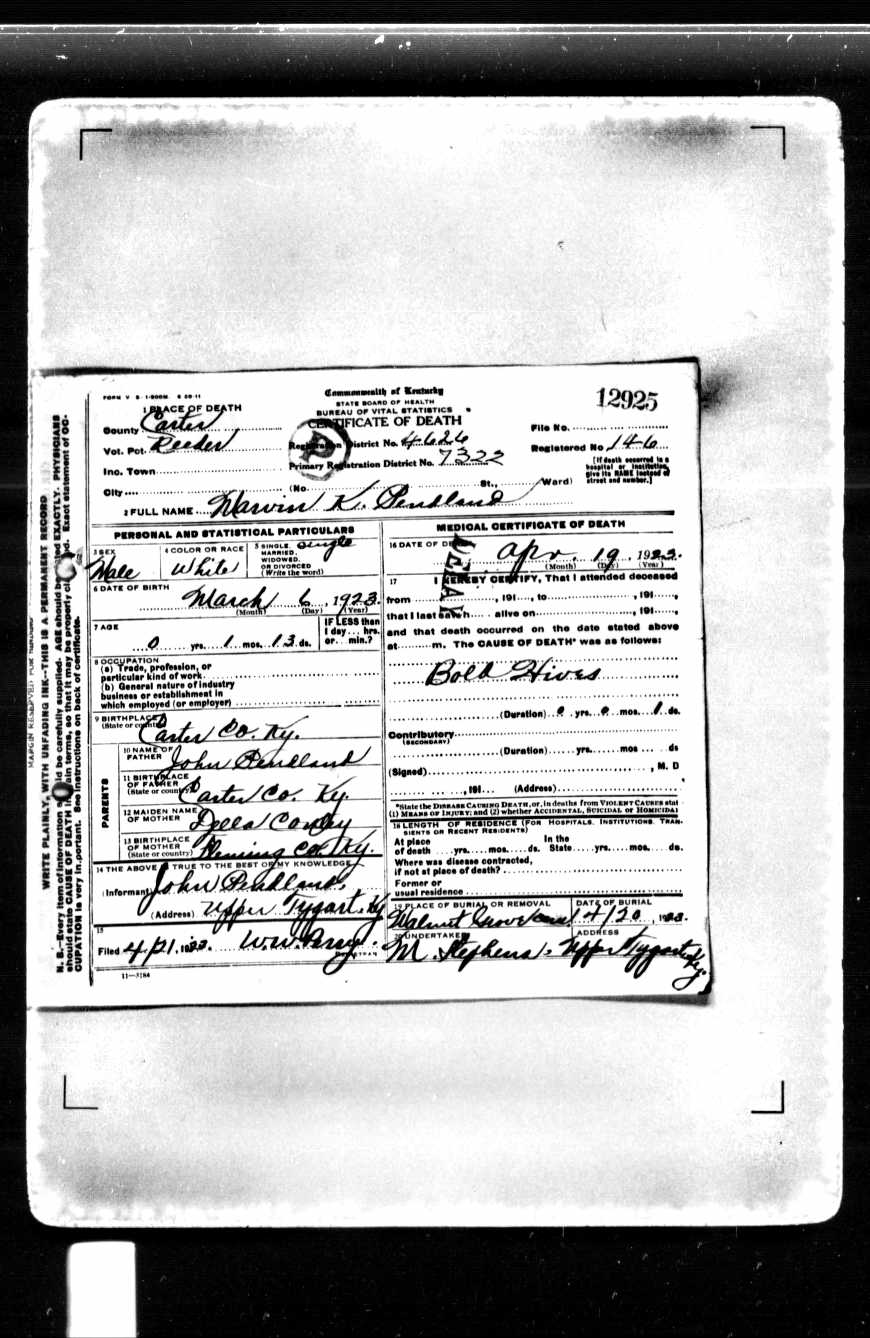 FORM V S 1-500M 6 20-11
Commonwealth of Kentucky
STATE BOARD OF HEALTH
BUREAU OF VITAL STATISTICS
CERTIFICATE OF DEATH
12925
1 PLACE OF DEATH
County Carter
Vot. Pct. Reeder
Inc. Town
City
Registration District No. 4626
Primary Registration District No. 7322
File No.
Registered No 146
[If death occurred in a hospital or institution, give its NAME instead of street and number.]
(No. St., Ward)
2 FULL NAME Marvin K. Pendland
PERSONAL AND STATISTICAL PARTICULARS
3 SEX Male
4 COLOR OR RACE White
5 SINGLE, MARRIED, WIDOWED, OR DIVORCED (Write the word) Single
6 DATE OF BIRTH
March 6, 1923
(Month) (Day) (Year)
7 AGE
0 yrs. 1 mos. 13 ds.
IF LESS than 1 day... hrs. or... min.?
8 OCCUPATION
(a) Trade, profession, or
particular kind of work
(b) General nature of industry
business or establishment in
which employed (or employer)
9 BIRTHPLACE
(State or country) Carter Co. Ky.
PARENTS
10 NAME OF FATHER John Pendland
11 BIRTHPLACE OF FATHER (State or country) Carter Co. Ky.
12 MAIDEN NAME OF MOTHER Della
13 BIRTHPLACE OF MOTHER (State or country) Fleming Co. Ky.
14 THE ABOVE IS TRUE TO THE BEST OF MY KNOWLEDGE
(Informant) John Pendland.
(Address) Upper Tygart, Ky
15
Filed 4/21, 1923. W.W. Perry.
REGISTRAR
11-3184
MEDICAL CERTIFICATE OF DEATH
16 DATE OF DEATH
Apr. 19, 1923.
(Month) (Day) (Year)
DELAY
17 I HEREBY CERTIFY, That I attended deceased
from , 191 , to , 191 ,
that I last saw h alive on , 191 ,
and that death occurred on the date stated above
at m. The CAUSE OF DEATH* was as follows:
Bold Hives
(Duration) 0 yrs. 0 mos. 1 ds.
Contributory
(SECONDARY)
(Duration) yrs. mos. ds
(Signed) , M. D
, 191 (Address)
*State the DISEASE CAUSING DEATH, or, in deaths from VIOLENT CAUSES stat
(1) MEANS OF INJURY; and (2) whether ACCIDENTAL, SUICIDAL or HOMICIDAL
18 LENGTH OF RESIDENCE (FOR HOSPITALS, INSTITUTIONS, TRANSIENTS OR RECENT RESIDENTS)
At place of death yrs. mos. ds. In the State yrs. mos. ds.
Where was disease contracted,
if not at place of death?
Former or
usual residence
19 PLACE OF BURIAL OR REMOVAL Walnut Grove
DATE OF BURIAL 4/20, 1923.
20 UNDERTAKER M. Stephens.
ADDRESS Upper Tygart, Ky.
MARGIN RESERVED FOR BINDING
WRITE PLAINLY, WITH UNFADING INK--THIS IS A PERMANENT RECORD
N. B.--Every item of information should be carefully supplied. AGE should be stated EXACTLY. PHYSICIANS
should state CAUSE OF DEATH in plain terms, so that it may be properly classified. Exact statement of OC-
CUPATION is very important. See instructions on back of certificate.